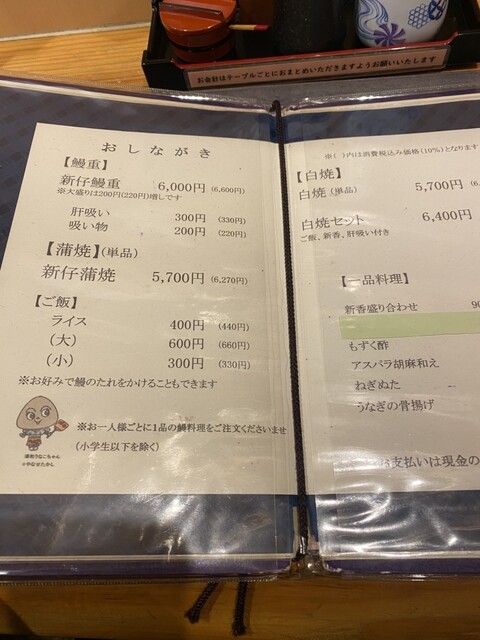 お会計はテーブルごとにおまとめいただきますようお願いいたします
おしながき
【鰻重】
新仔鰻重 6,000円 (6,600円)
※大盛りは200円(220円)増しです
肝吸い 300円 (330円)
吸い物 200円 (220円)
【蒲焼】(単品)
新仔蒲焼 5,700円 (6,270円)
【ご飯】
ライス 400円 (440円)
(大) 600円 (660円)
(小) 300円 (330円)
※お好みで鰻のたれをかけることもできます
※お一人様ごとに1品の鰻料理をご注文くださいませ
(小学生以下を除く)
浦和うなこちゃん
©やなせたかし
※( )内は消費税込み価格(10%)となります
【白焼】
白焼(単品) 5,700円
白焼セット 6,400円
ご飯、新香、肝吸い付き
【一品料理】
新香盛り合わせ
もずく酢
アスパラ胡麻和え
ねぎぬた
うなぎの骨揚げ
お支払いは現金の